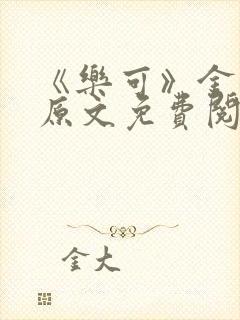 《樂可》金
原文免費閱
金大